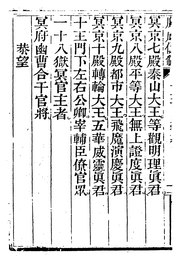 冥京七殿泰山大王等觀明理真君
冥京八殿平等大王無上證度真君
冥京九殿都市大王飛魔演慶真君
冥京十殿轉輪大王五華威靈真君
十王門下左右公卿宰輔臣僚官眾
一十八獄冥官主者
冥府幽曹合干官將
恭望